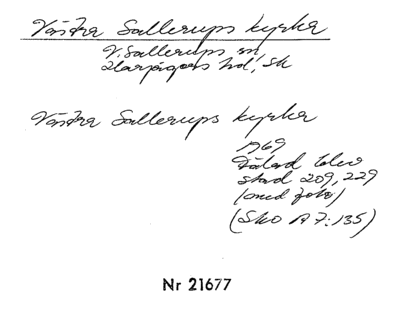 Västra Sallerups kyrka
V. Sallerups sn,
Harjagers hd, Sk
Västra Sallerups kyrka
1969
stad 209, 229
(med foto)
(Sko A 7:135)
Nr 21677